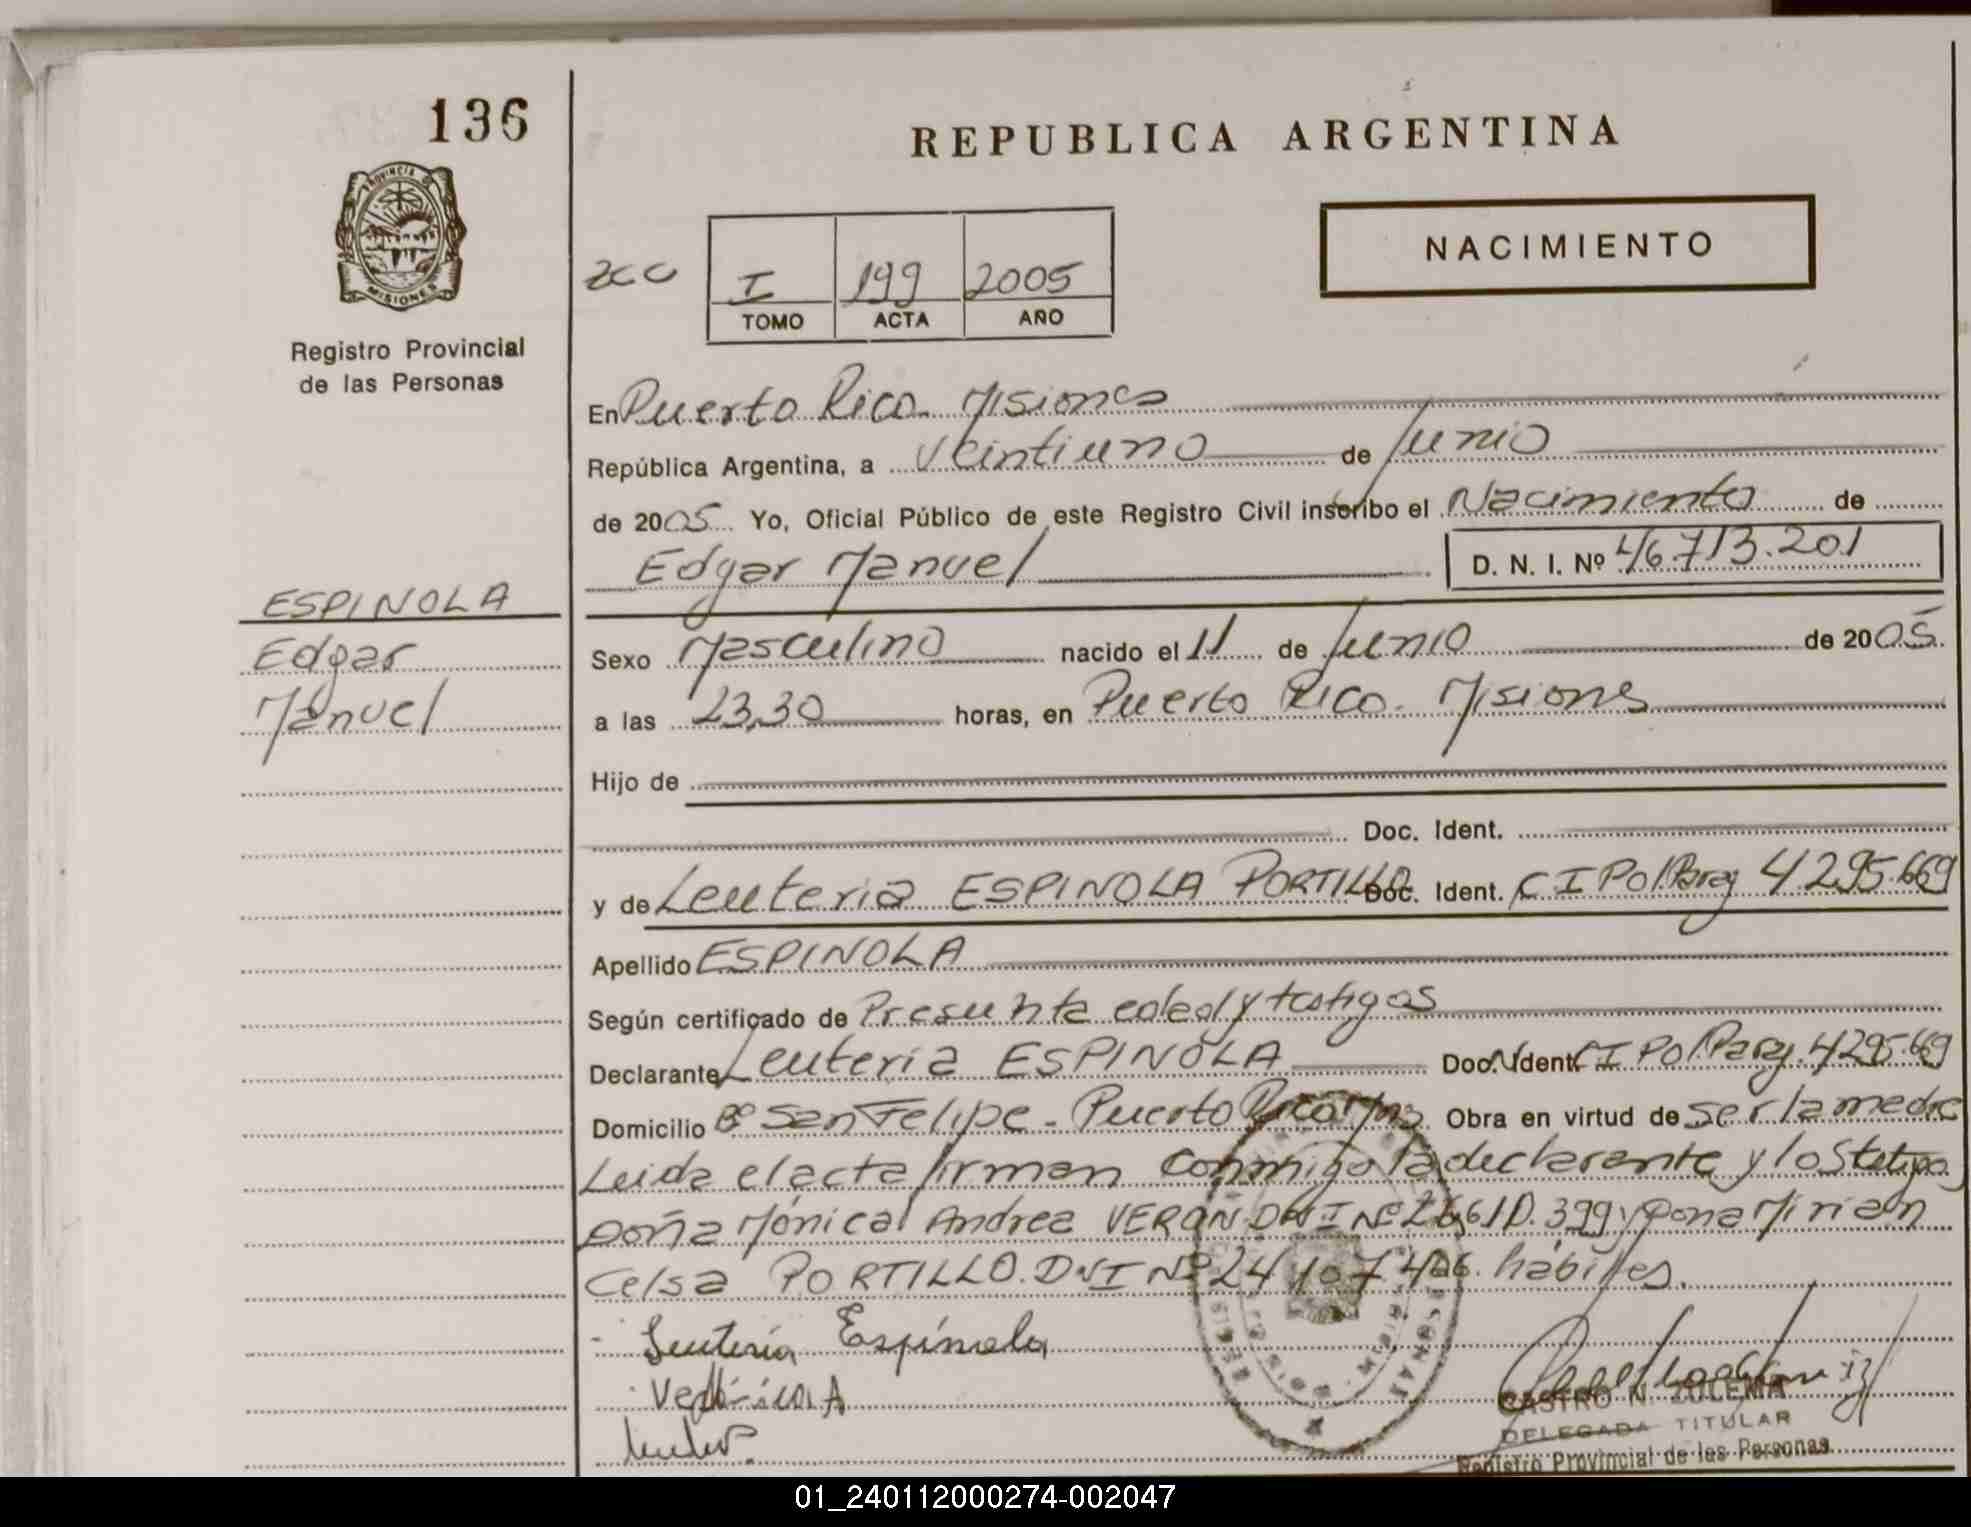 136
REPUBLICA ARGENTINA
PROVINCIA D
MISIONES
Registro Provincial
de las Personas
NACIMIENTO
I 199 2005
TOMO ACTA AÑO
En Puerto Rico. Misiones
República Argentina, a Veintiuno de Junio
de 2005 Yo, Oficial Público de este Registro Civil inscribo el Nacimiento de
Edgar Manuel D. N. I. Nº 46.713.201
ESPINOLA
Edgar
Manuel
Sexo Masculino nacido el 11 de Junio de 2005.
a las 23,30 horas, en Puerto Rico. Misiones
Hijo de
Doc. Ident.
y de Leuteria ESPINOLA PORTILLO Doc. Ident. CI Pol Parag 4295.669
Apellido ESPINOLA
Según certificado de Presunta edad y testigos
Declarante Leuteria ESPINOLA Doc. Ident. CI Pol. Parag. 4295.669
Domicilio Bº San Felipe - Puerto Rico Mnes Obra en virtud de ser la madre
Leida el acta firman conmigo la declarante y los testigos
Doña Mónica Andrea VERON DNI Nº 26.610.399 y Dona Mirian
Celsa PORTILLO. DNI Nº 24.107.406. hábiles.
Leuteria Espínola
CASTRO N. ZULEMA
DELEGADA TITULAR
Registro Provincial de las Personas
01_240112000274-002047